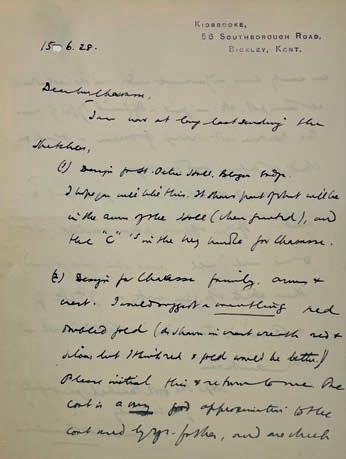 KIDBROOKE,
56 SOUTHBOROUGH ROAD,
BICKLEY, KENT.
15-6.28.
Dear Mr Chavasse,
I am now at long last sending the
sketches,
(1) Design for St. Peter Hall, Bridge.
I hope you will like this. It shows part of what will be
in the arms of the Hall (when granted), and
the "C" is in the key handle for Chavasse.
(2) Design for Chavasse family, arms &
crest. I would suggest a mantling red
doubled gold (as shown in crest wreath red &
silver, but I think red & gold would be better.)
Please initial this & return to me. The
coat is a very good approximation to the
coat used by yr. father, and are check